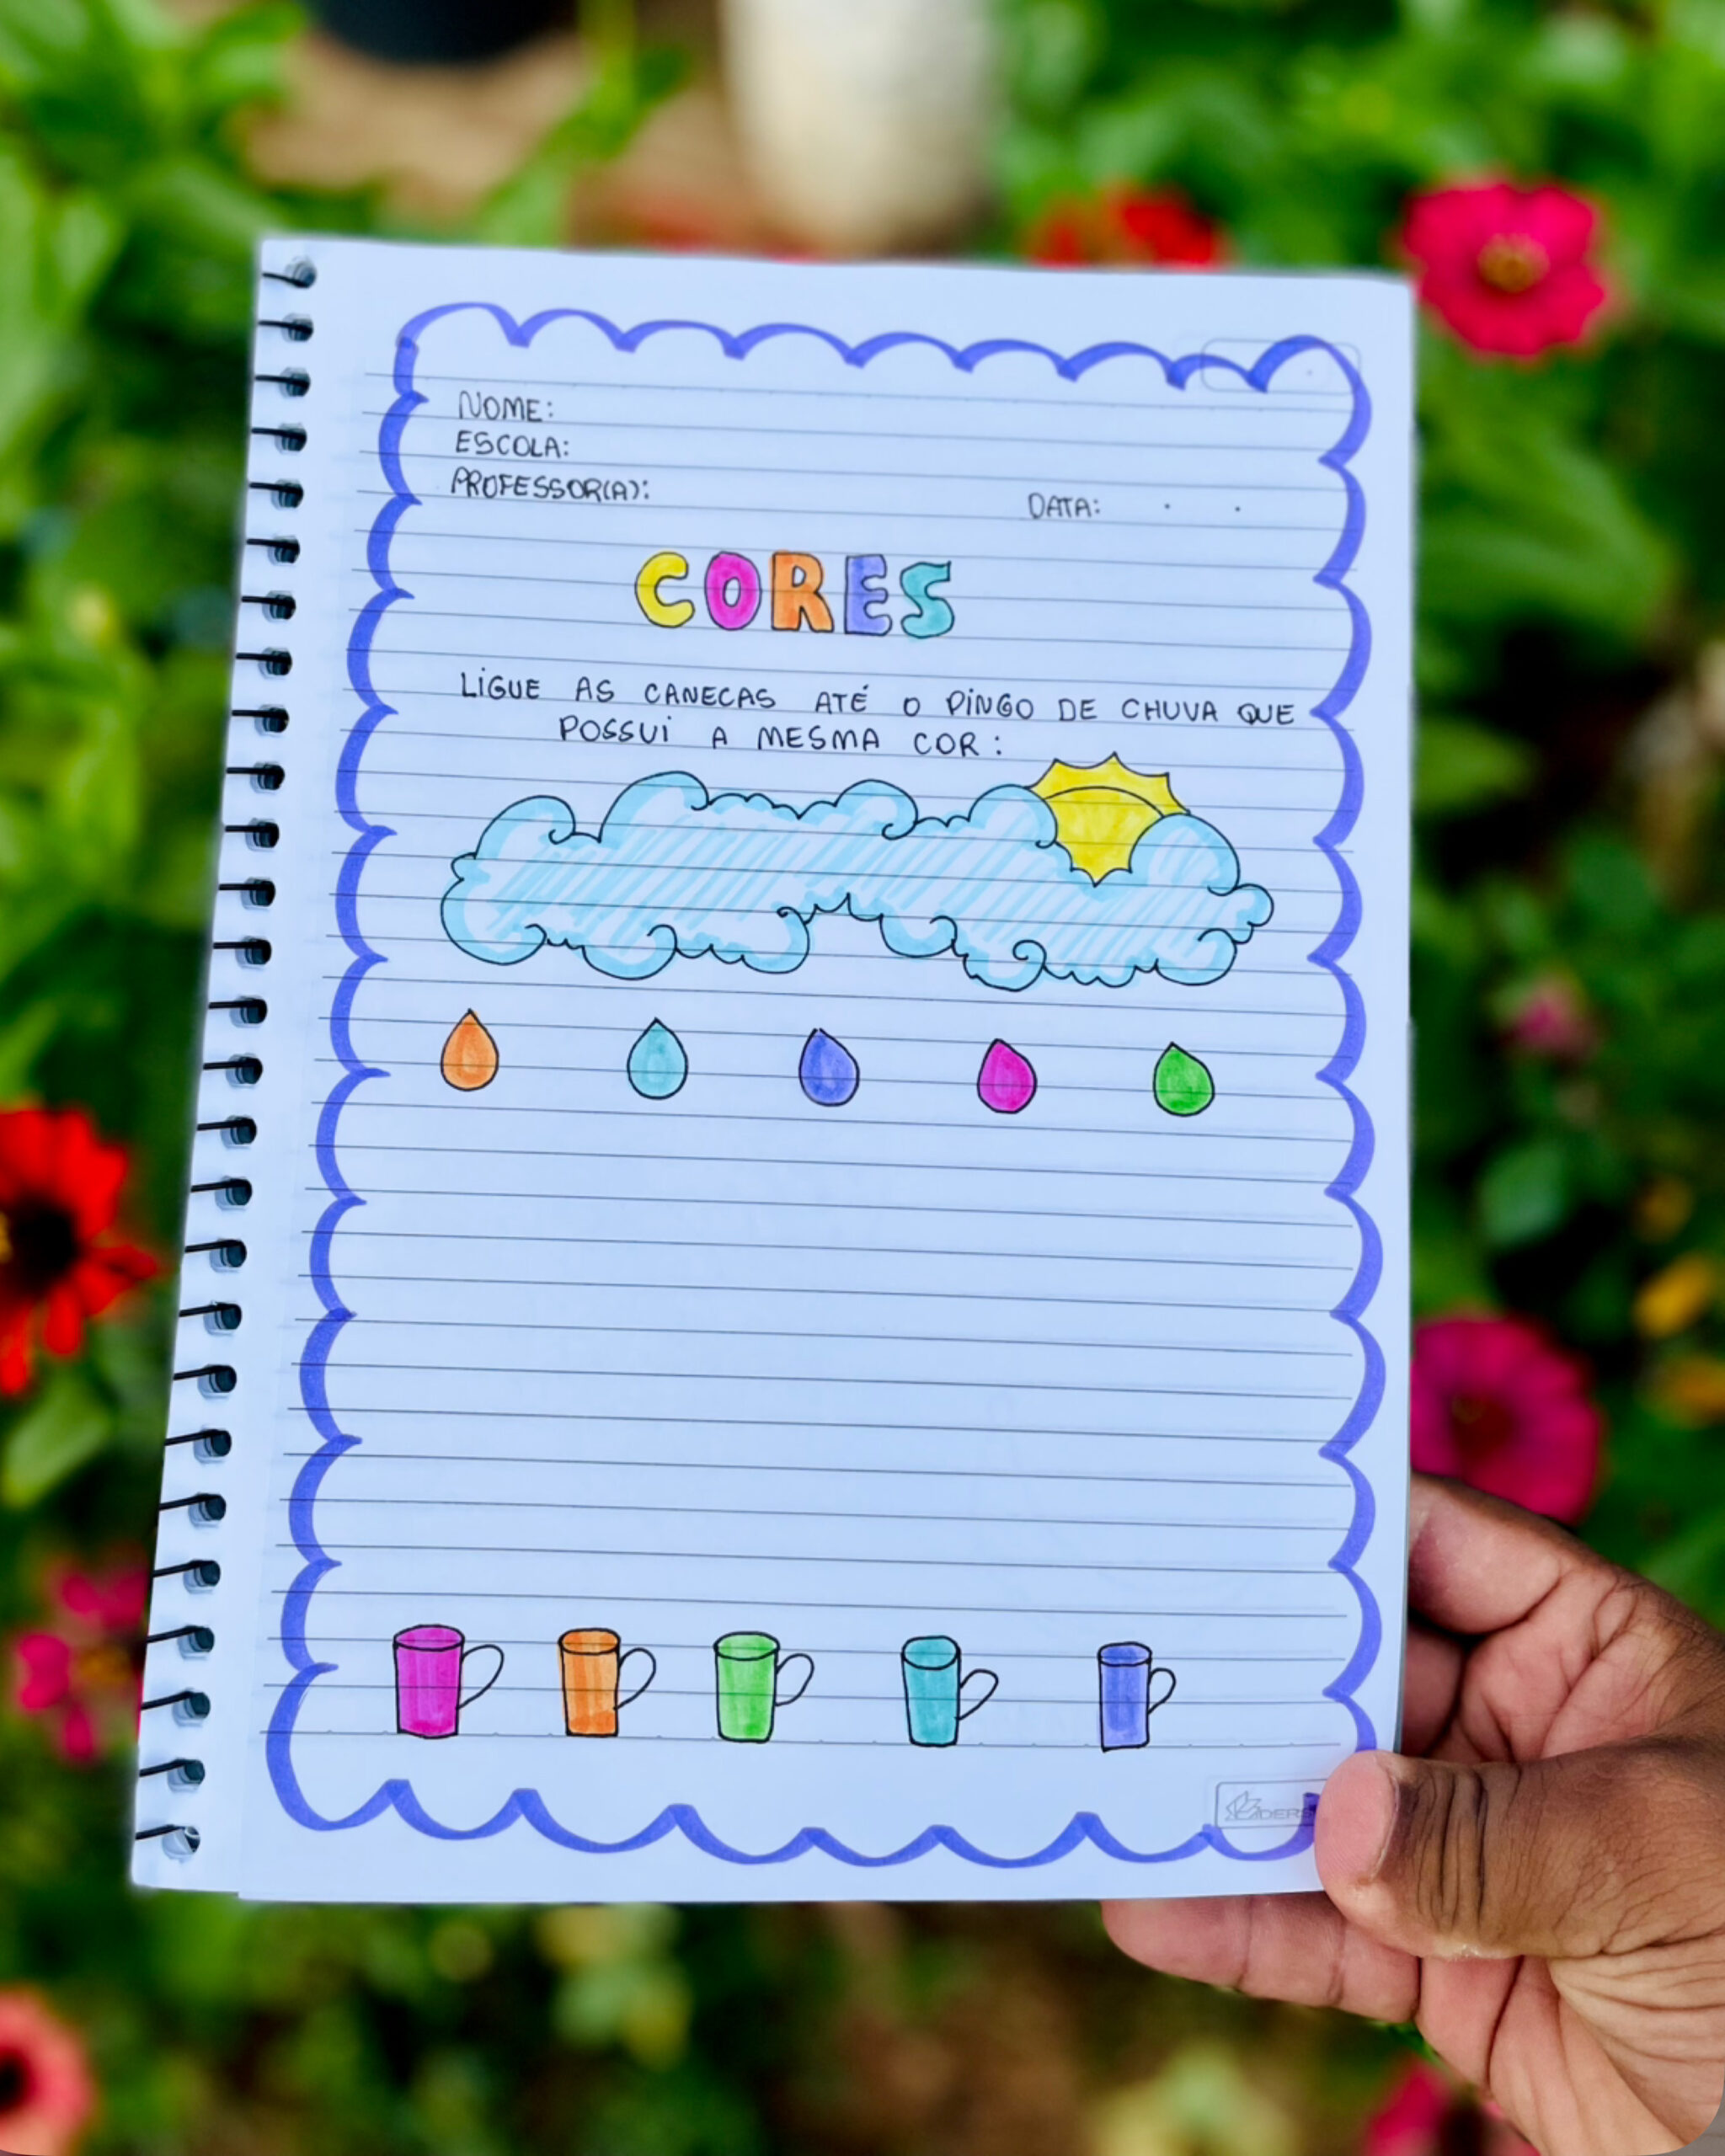 NOME:
ESCOLA:
PROFESSOR(A):
DATA: . .
CORES
LIGUE AS CANECAS ATÉ O PINGO DE CHUVA QUE
POSSUI A MESMA COR: